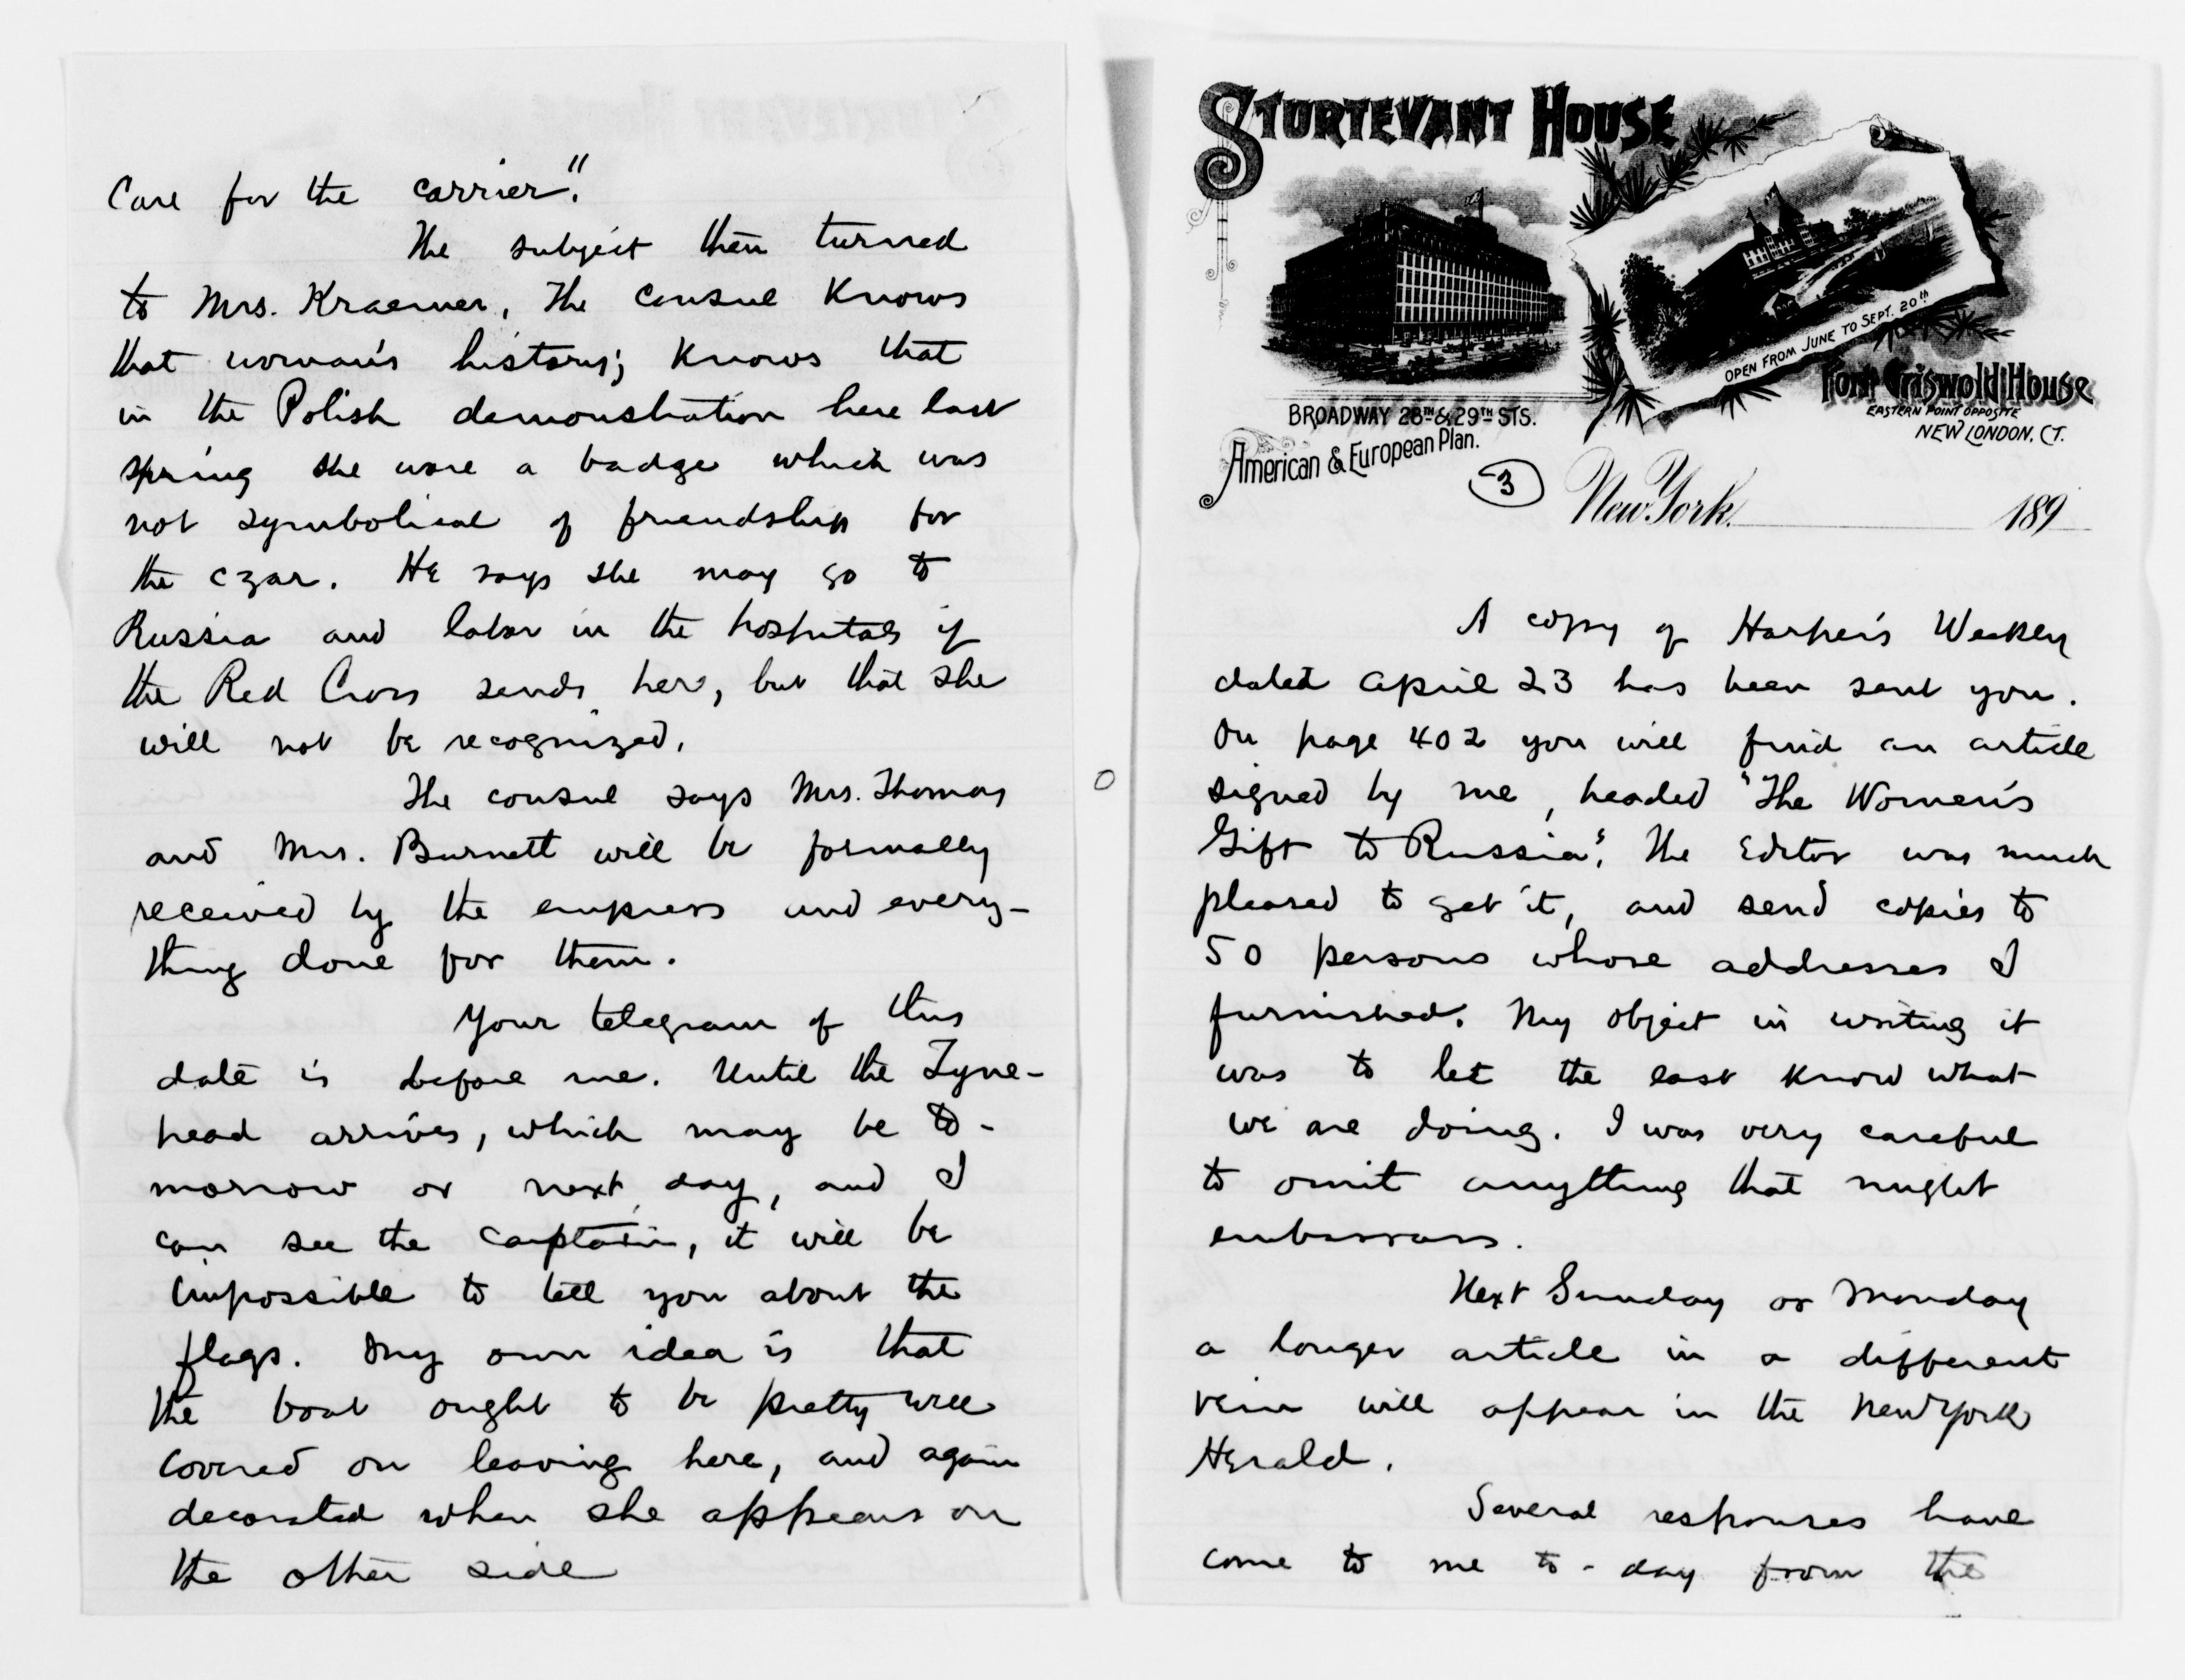 Care for the carrier."
The subject then turned
to Mrs. Kraemer, The consul knows
that woman's history; knows that
in the Polish demonstration here last
spring she wore a badge which was
not symbolical of friendship for
the czar. He says she may go to
Russia and labor in the hospitals if
the Red Cross sends her, but that she
will not be recognized.
The consul says Mrs. Thomas
and Mrs. Burnett will be formally
received by the empress and every-
thing done for them.
Your telegram of this
date is before me. Until the Tyne-
head arrives, which may be to-
morrow or next day, and I
can see the captain, it will be
impossible to tell you about the
flags. My own idea is that
the boat ought to be pretty well
covered on leaving here, and again
decorated when she appears on
the other side
STURTEVANT HOUSE
OPEN FROM JUNE TO SEPT. 20th
Fort Griswold House
EASTERN POINT OPPOSITE
NEW LONDON, CT.
BROADWAY 28TH & 29TH STS.
American & European Plan.
3
New York. 189
A copy of Harper's Weekly
dated April 23 has been sent you.
On page 402 you will find an article
signed by me, headed "The Women's
Gift to Russia". The Editor was much
pleased to get it, and send copies to
50 persons whose addresses I
furnished. My object in writing it
was to let the east know what
we are doing. I was very careful
to omit anything that might
embarrass.
Next Sunday or Monday
a longer article in a different
vein will appear in the New York
Herald.
Several responses have
come to me to-day from the